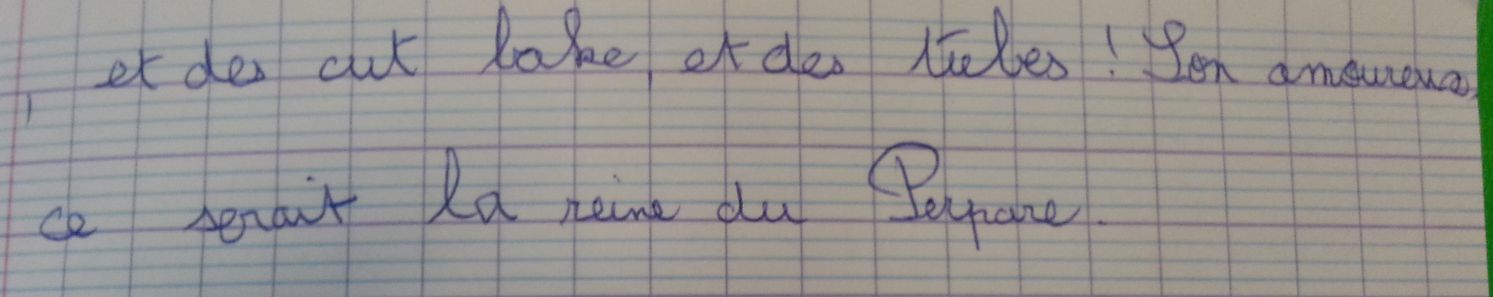 et des cut lake, et des tubes ! Son amoureux,
ce serait la reine du Perpare.